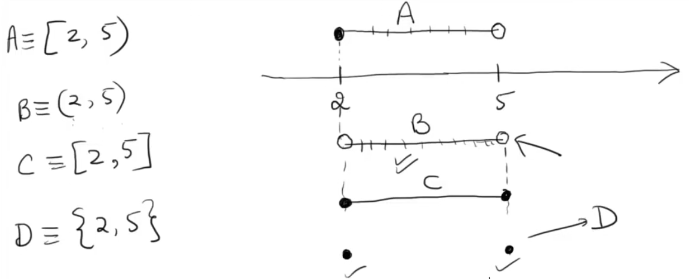 A≡[2, 5)
B≡(2, 5)
C≡[2, 5]
D≡{2, 5}
A
2 5
B
C
D